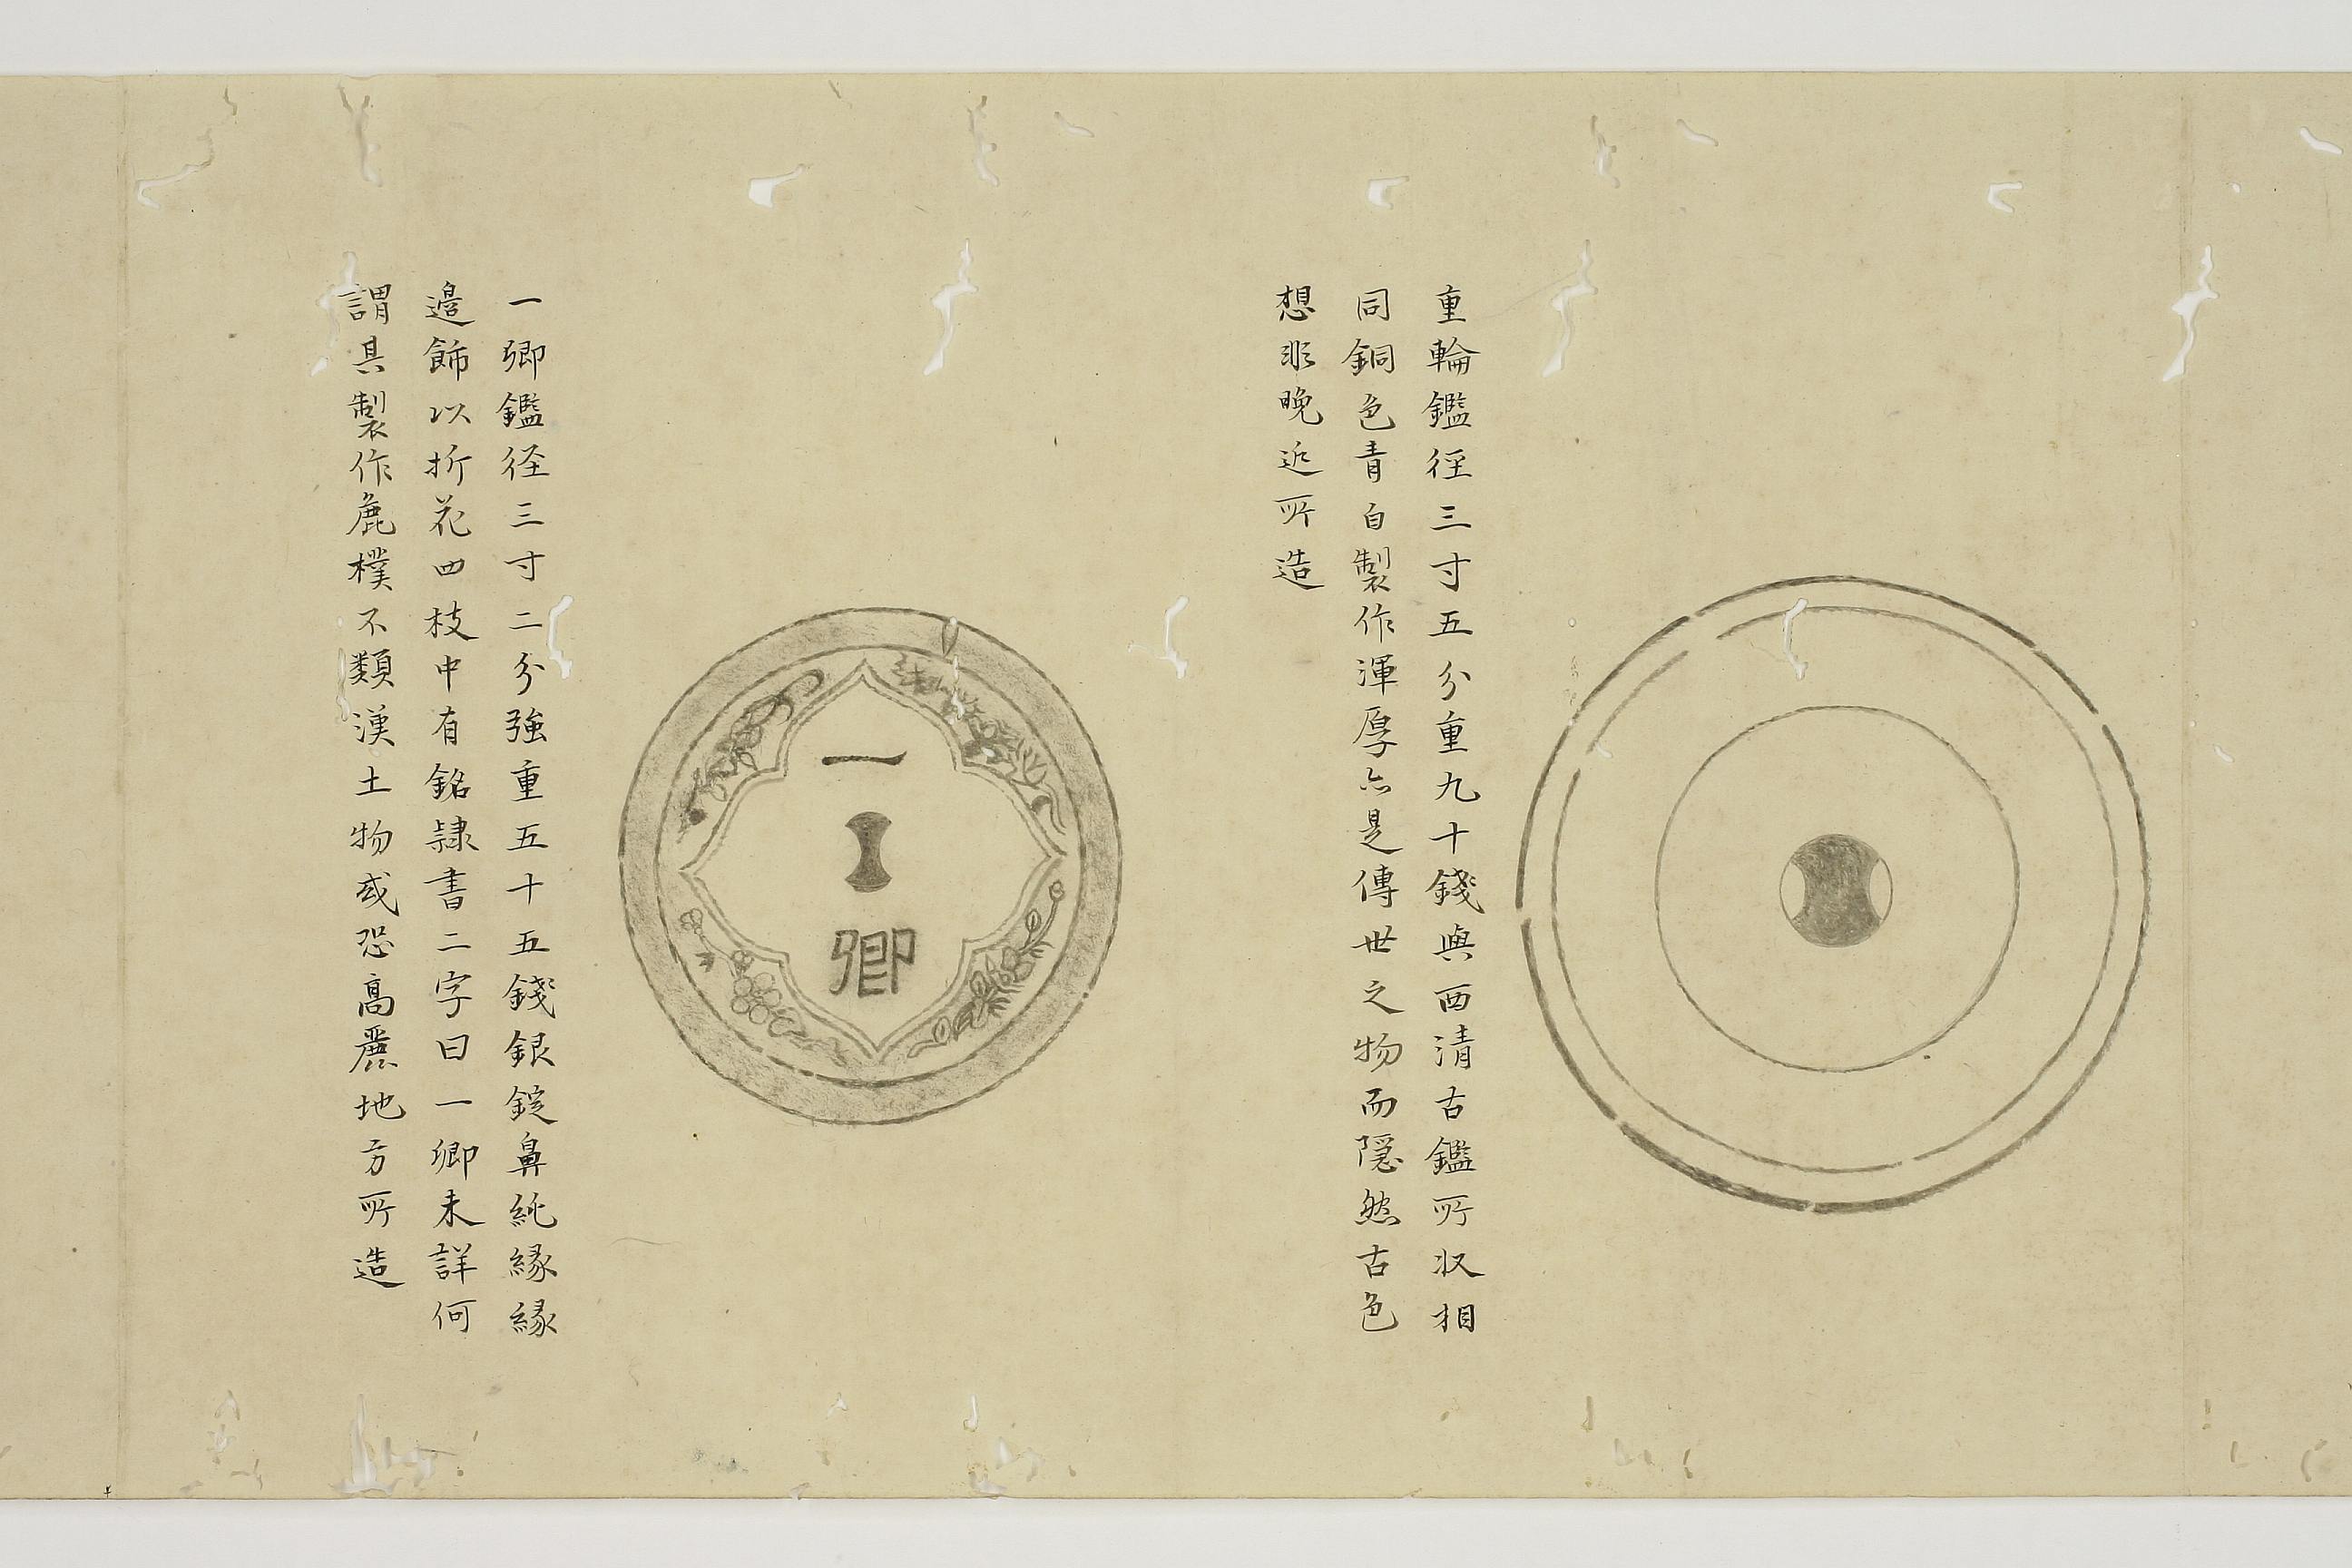 重輪鑑径三寸五分重九十錢與西清古鑑所収相
同銅色青白製作渾厚亦是傳世之物而隠然古色
想非晩近所造
一
卿
一卿鑑径三寸二分強重五十五錢銀錠鼻純縁縁
邉飾以折花四枝中有銘隷書二字曰一卿未詳何
謂其製作麁樸不類漢土物或恐髙麗地方所造